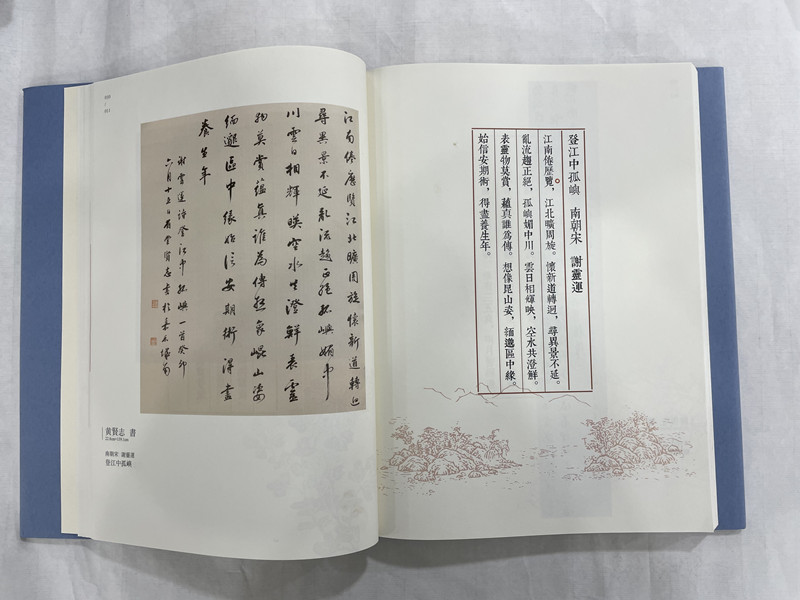 江南倦歷覽江北曠周旋懷新道轉迥
尋異景不延亂流趨正絕孤嶼媚中
川雲日相輝暎空水共澄鮮表靈
物莫賞蘊真誰為傳想象崐山姿
緬邈區中緣始信安期術得盡
養生年
謝靈運詩登江中孤嶼一首癸卯
六月十五日 賢志書於
黄賢志 書
南朝宋 謝靈運
登江中孤嶼
登江中孤嶼 南朝宋 謝靈運
江南倦歷覽，江北曠周旋。懷新道轉迥，尋異景不延。
亂流趨正絕，孤嶼媚中川。雲日相輝映，空水共澄鮮。
表靈物莫賞，蘊真誰爲傳。想像昆山姿，緬邈區中緣。
始信安期術，得盡養生年。